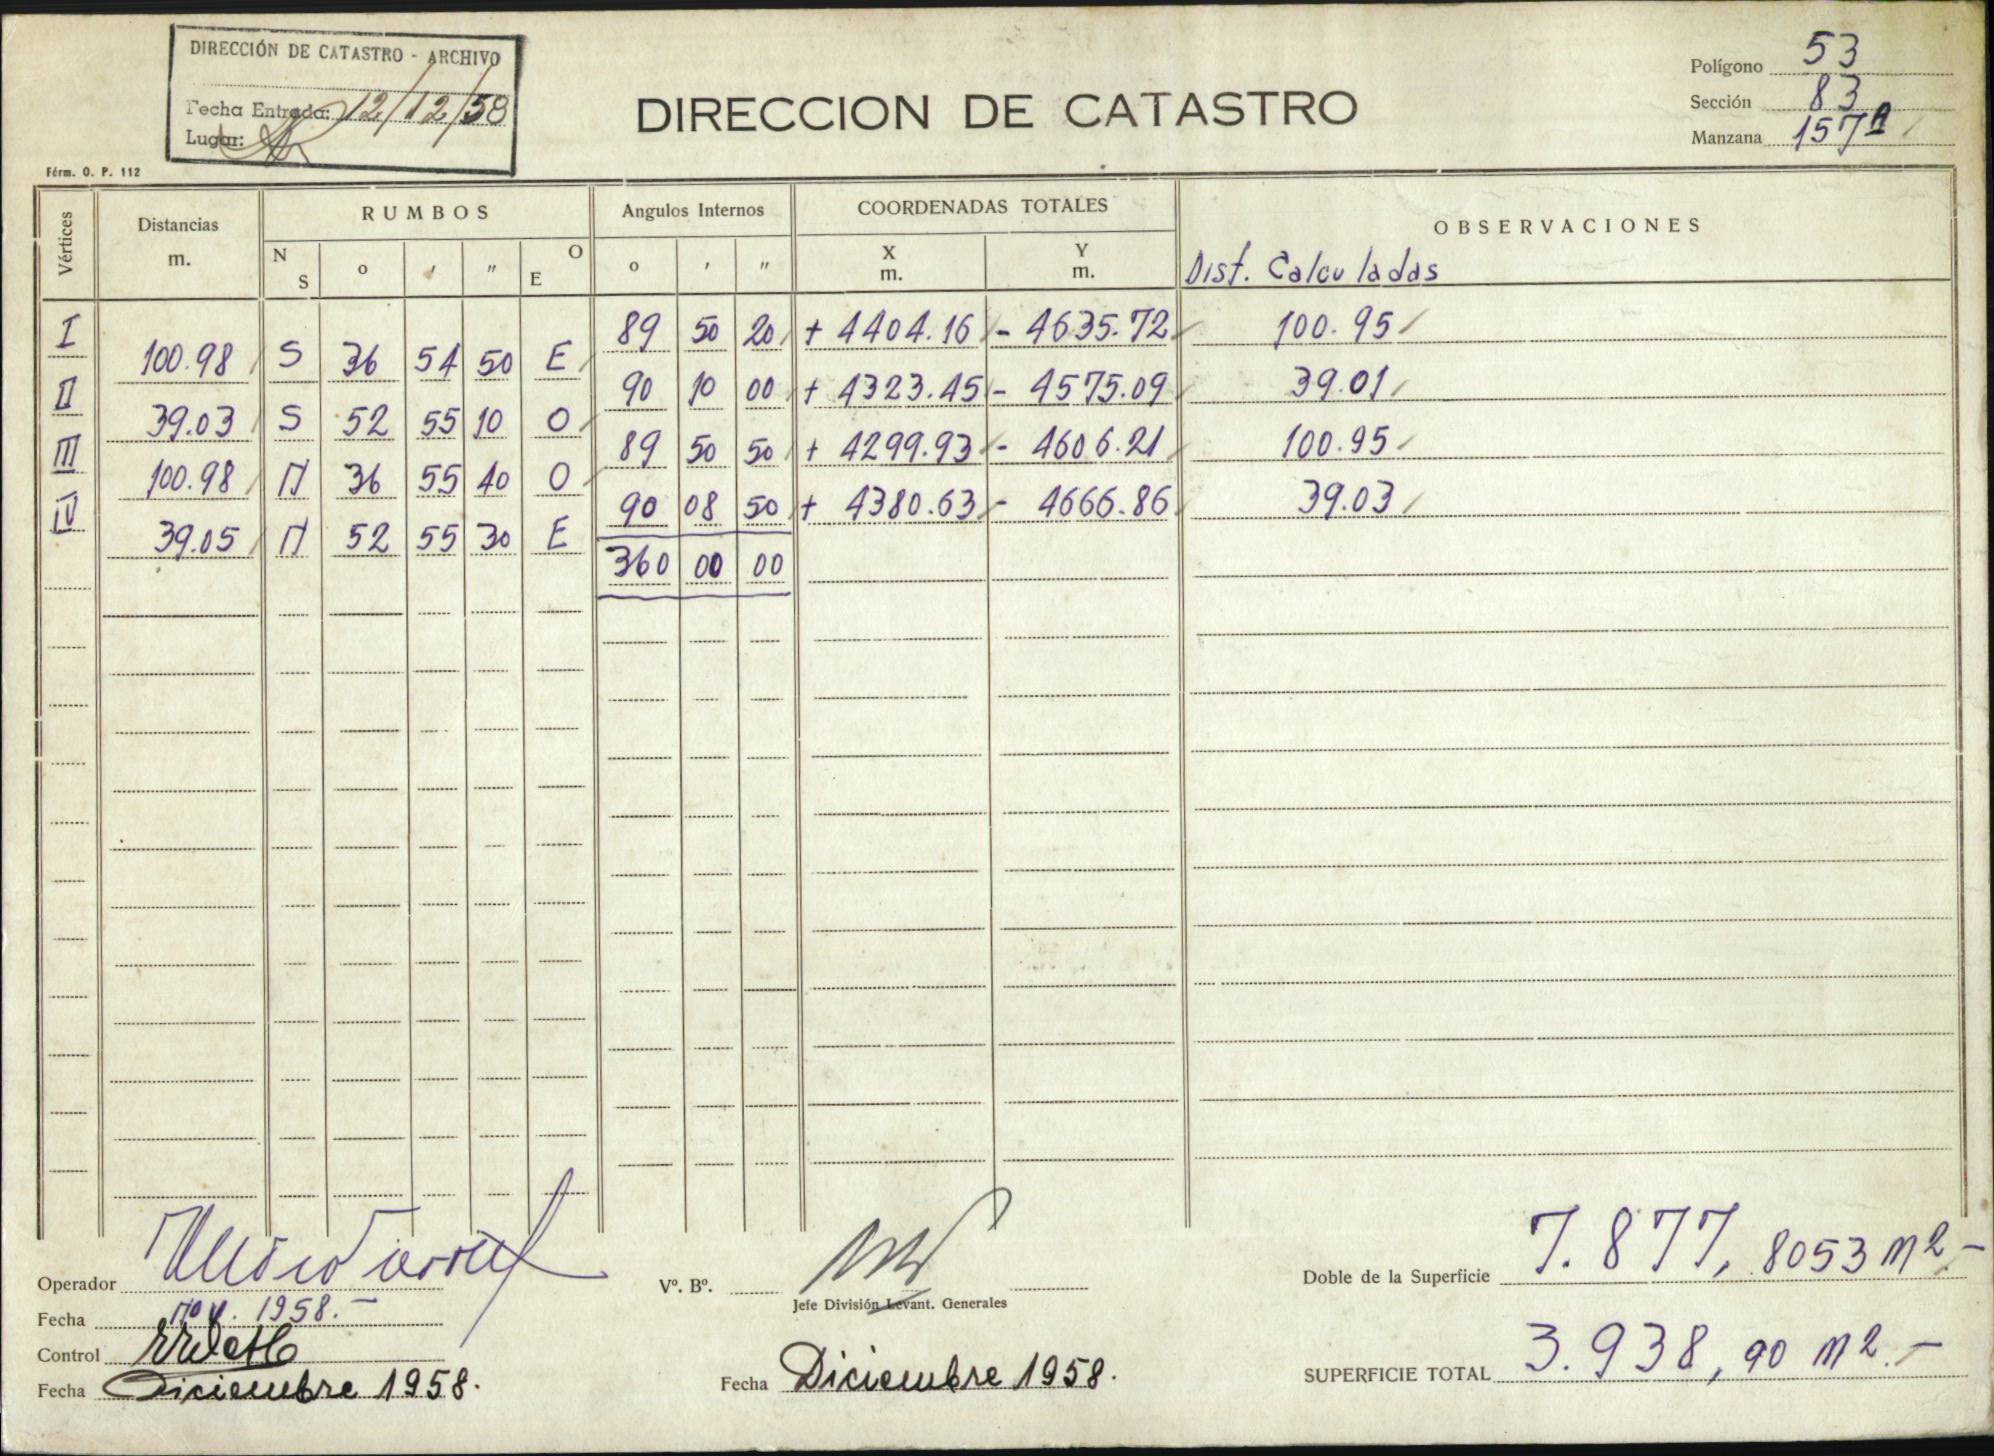 DIRECCIÓN DE CATASTRO - ARCHIVO
Fecha Entrada: 12/12/58
Lugar:
Férm. O. P. 112
DIRECCION DE CATASTRO
Polígono 53
Sección 83
Manzana 157A
Vértices Distancias m. RUMBOS Angulos Internos COORDENADAS TOTALES OBSERVACIONES
N S o ′ ″ O E o ′ ″ X m. Y m. Dist. Calculadas
I 89 50 20 + 4404.16 - 4635.72 100.95
100.98 S 36 54 50 E
II 90 10 00 + 4323.45 - 4575.09 39.01
39.03 S 52 55 10 O
III 89 50 50 + 4299.93 - 4606.21 100.95
100.98 N 36 55 40 O
IV 90 08 50 + 4380.63 - 4666.86 39.03
39.05 N 52 55 30 E
360 00 00
Operador
Fecha nov. 1958.-
Control
Fecha Diciembre 1958.
Vº. Bº.
Jefe División Levant. Generales
Fecha Diciembre 1958.
Doble de la Superficie 7.877, 8053 m2.-
SUPERFICIE TOTAL 3.938, 90 m2.-